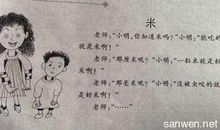 米
老师:“小明,你知道米吗?”小明:“能吃的
就是米啊!”
老师:“那厘米呢?”小明:“一粒米就是粒
米啊!”
老师:“那毫米呢?”小明:“没被虫咬的就
是好米啊!”
老师:“……”
sanwen.net